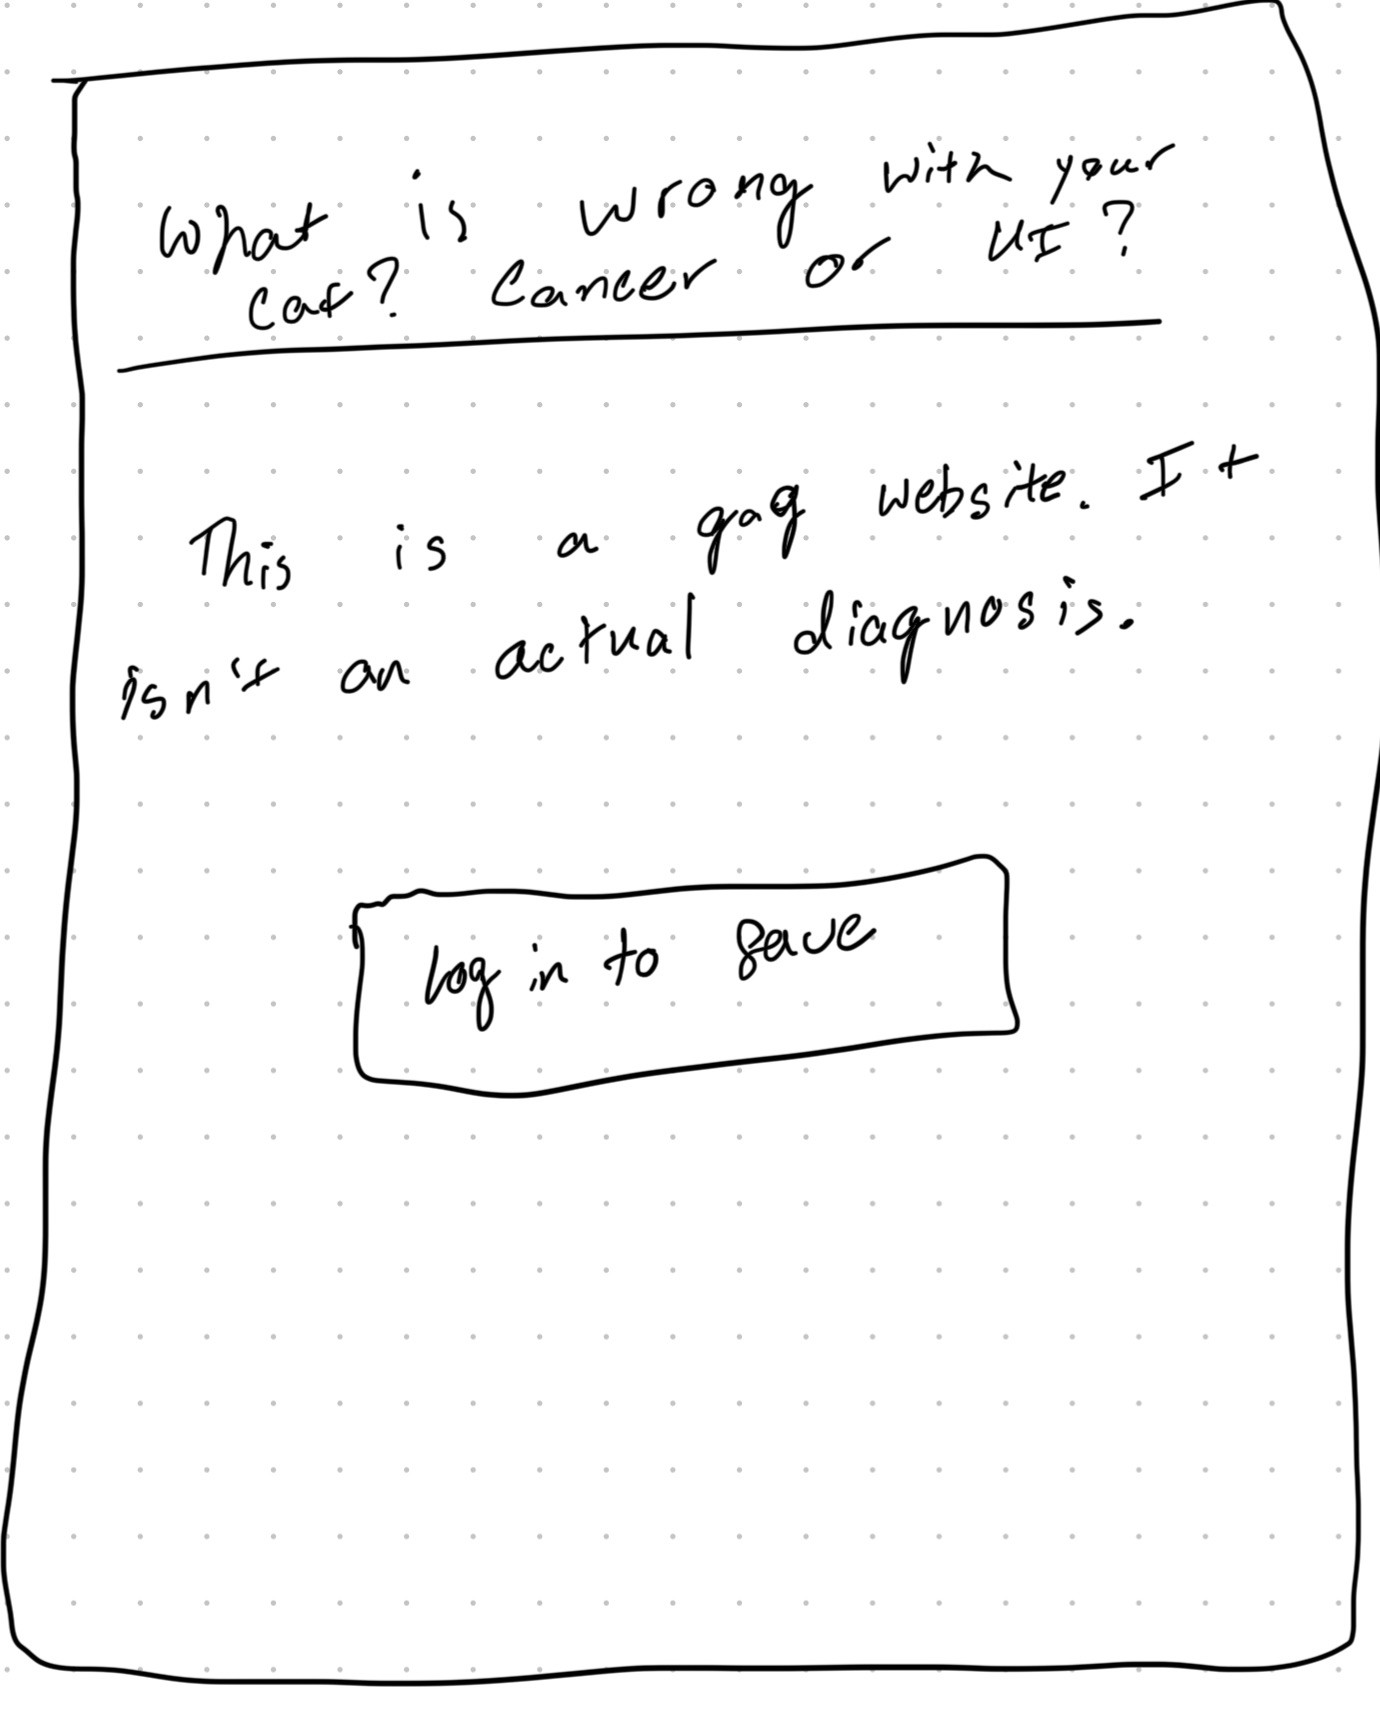 What is wrong with your
cat? Cancer or UI?
This is a gag website. It
isn't an actual diagnosis.
Log in to save